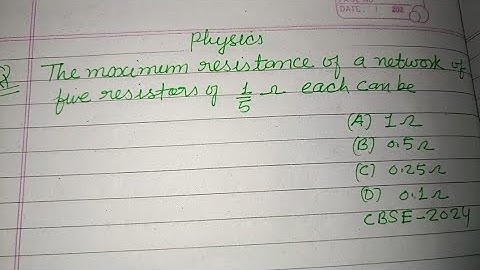 DATE: 202
Physics
Q The maximum resistance of a network of
five resistors of 1/5 Ω each can be
(A) 1Ω
(B) 0.5Ω
(C) 0.25Ω
(D) 0.1Ω
CBSE-2024